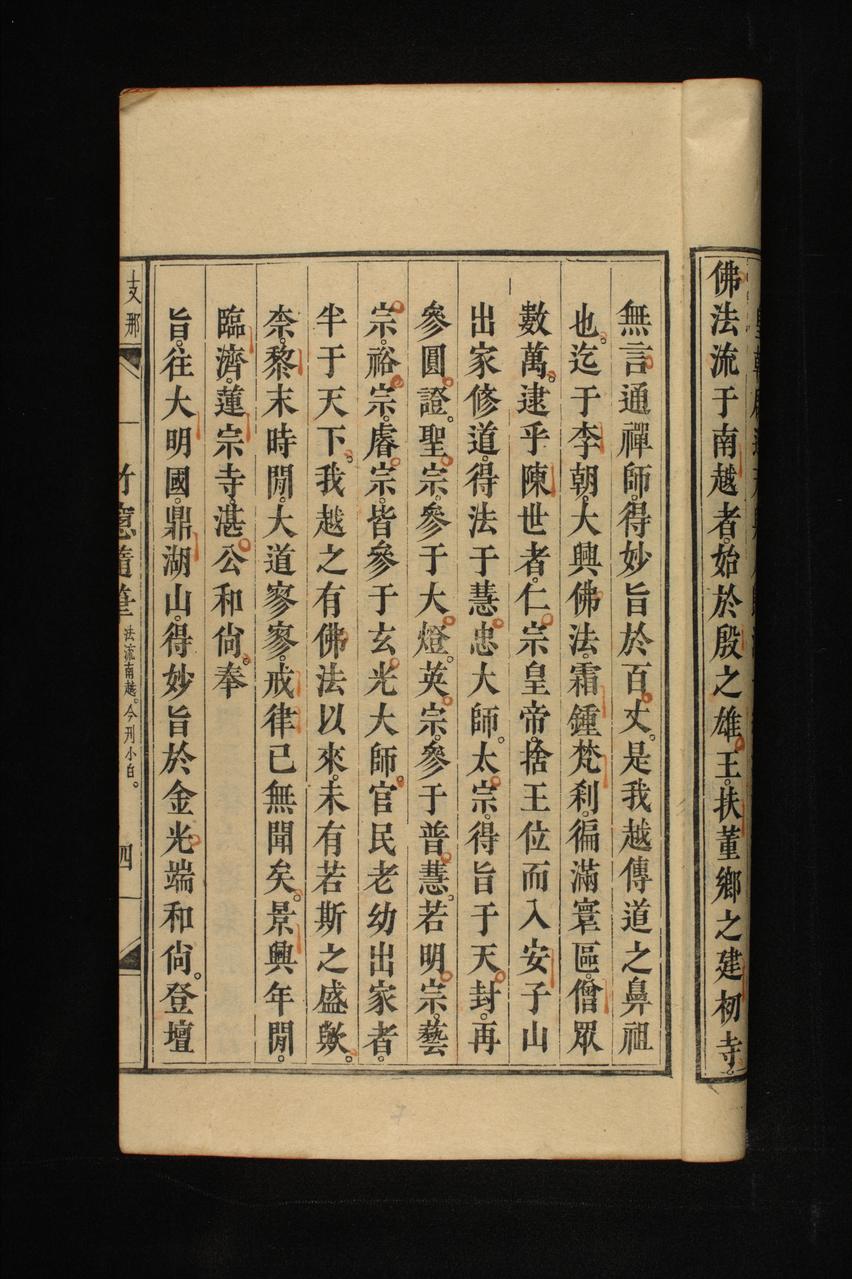 佛法流于南越者。始於殷之雄王。扶董鄉之建初寺。
無言通禪師。得妙旨於百丈。是我越傳道之鼻祖
也。迄于李朝。大興佛法。霜鍾梵刹。徧滿寰區。僧眾
數萬。逮乎陳世者。仁宗皇帝。捨王位而入安子山
出家修道。得法于慧忠大師。太宗。得旨于天封。再
參圓證。聖宗。參于大燈。英宗。參于普慧。若明宗。藝
宗。裕宗。睿宗。皆參于玄光大師。官民老幼出家者。
半于天下。我越之有佛法以來。未有若斯之盛歟。
奈。黎末時閒。大道寥寥。戒律已無聞矣。景興年閒。
臨濟。蓮宗寺。湛公和尙。奉
旨。往大明國。鼎湖山。得妙旨於金光端和尙。登壇
支那
竹窻隨筆
法流南越。今刋小白。
四